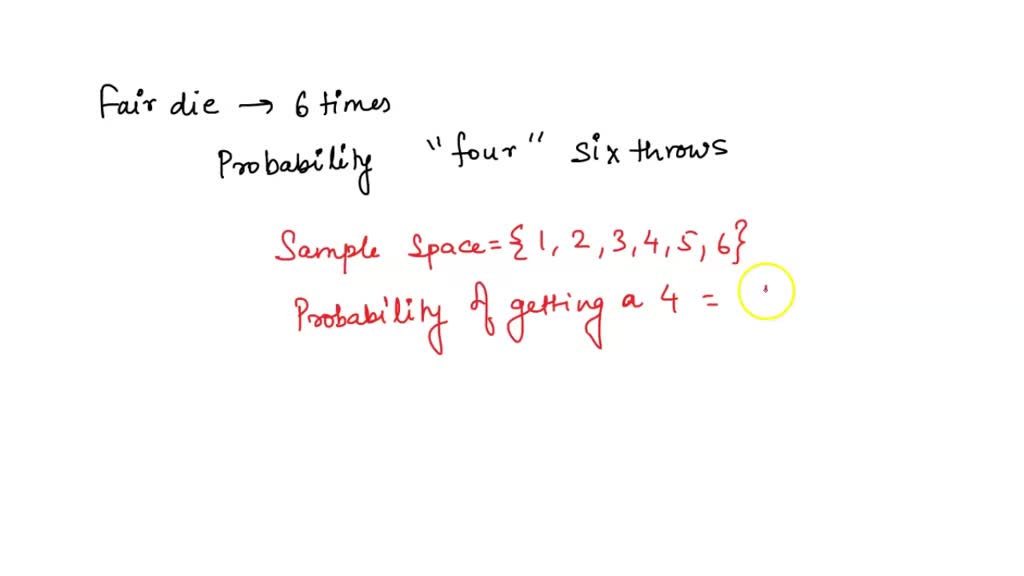 Fair die → 6 times
Probability "four" six throws
Sample Space = { 1, 2, 3, 4, 5, 6}
Probability of getting a 4 =